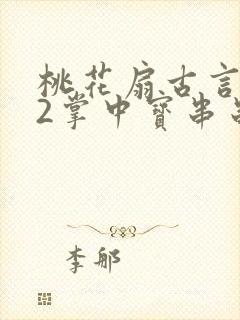 桃花扇古言
2掌中寶串
李郍